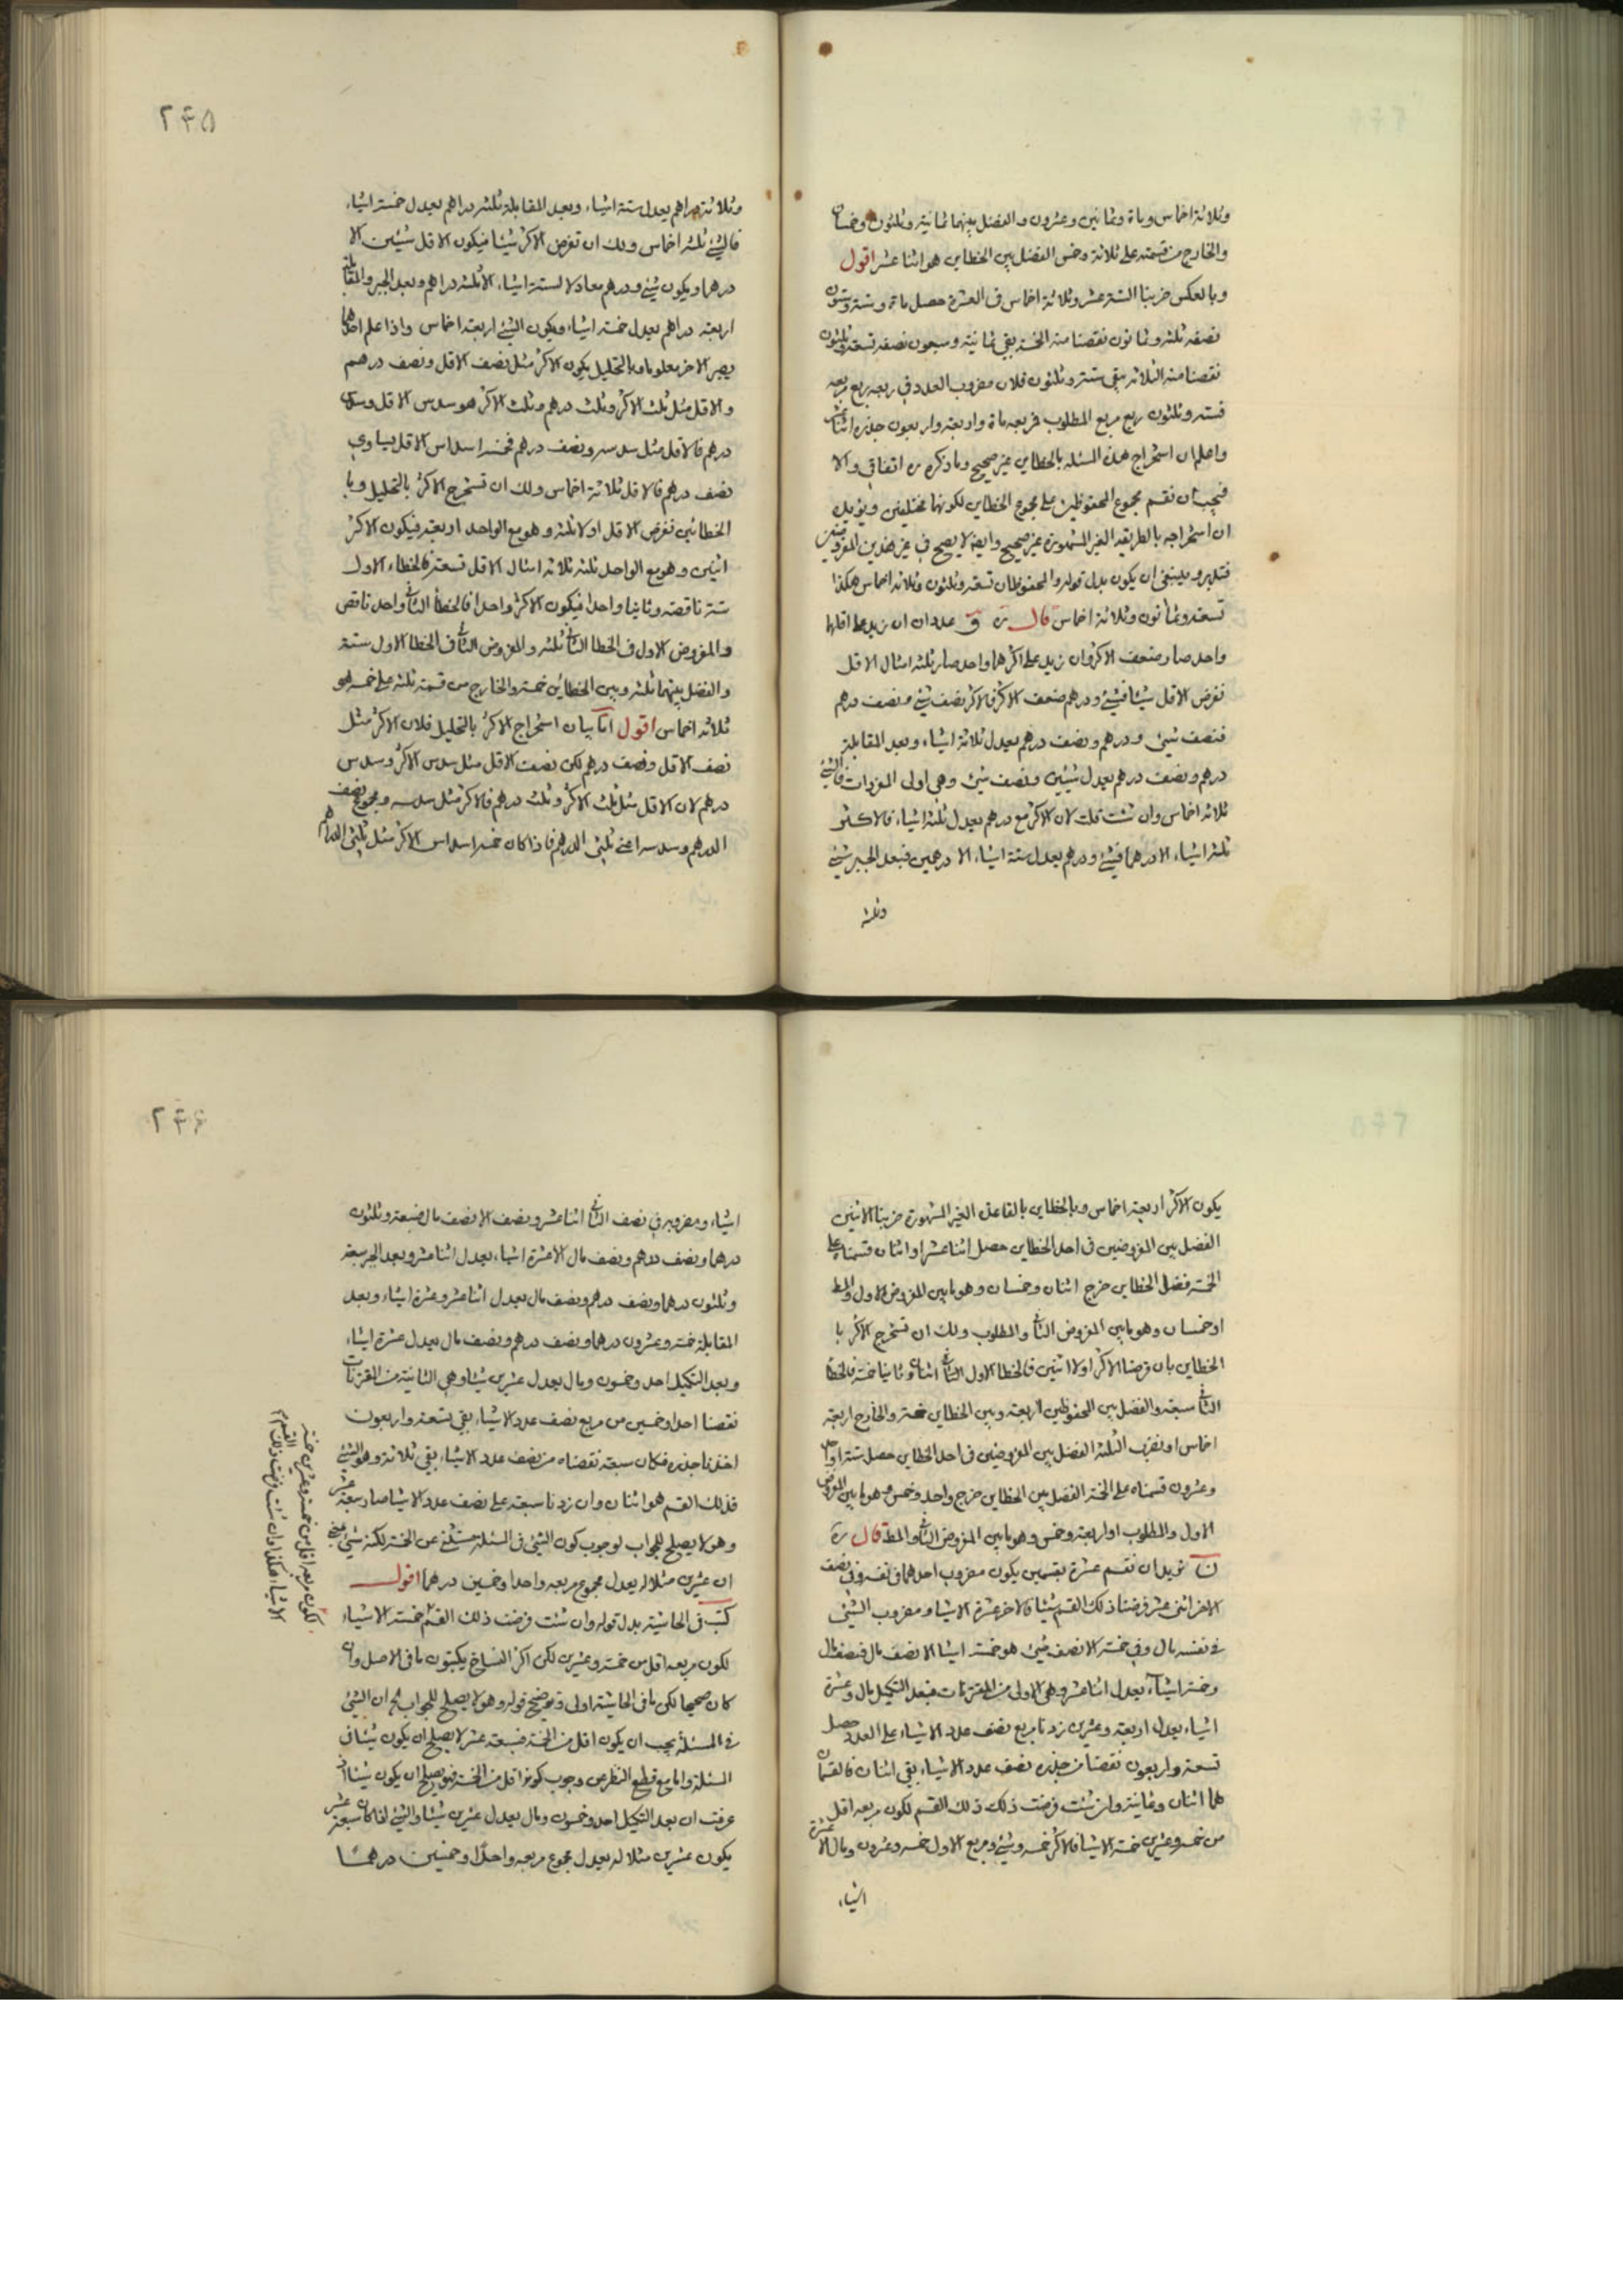 وثلاثة اخماس وماة وثمانين وعشرون والفضل بينهما ثمانية وثلثون وخمسان
والخارج من قسمته على ثلاثة وخمس الفضل بين الخطاين هو اثنا عشر اقول
وبالعكس ضربنا الستة عشر وثلاثة اخماس فى العشرة حصل ماة وستة وستون
نصفه ثلثة وثمانون نقصنا منه الخمسة بقى ثمانية وسبعون نصفه تسعة وثلثون
نقصنا منه الثلاثة بقى ستة وثلثون فلان مضروب العدد فى ربعه ربع مربعه
فستة وثلثون ربع مربع المطلوب فمربعه ماة واربعة واربعون جذره اثنا عشر
واعلم ان استخراج هذه المسئلة بالخطاين غير صحيح وما ذكره ره اتفاقى والا
فيجب ان نقسم مجموع المحفوظين على مجموع الخطاين لكونهما مختلفين ويؤيده
ان استخراجه بالطريقه الغير المشهورة غير صحيح وايضا لا يصح فى غير هذين المفروضين
فتدبر وينبغى ان يكون بدل قوله والمحفوظان تسعة وثلثون وثلاثة اخماس هكذا
تسعة وثمانون وثلاثة اخماس قال ره ق عددان ان زيد على اقلهما
واحد صار ضعف الاكثر وان زيد على اكثرهما واحد صار ثلثة امثال الاقل
نفرض الاقل شيئا فشيئ ودرهم ضعف الاكثر فالاكثر نصف شيئ ونصف درهم
فنصف شيئ ودرهم ونصف درهم يعدل ثلاثة اشياء وبعد المقابلة
درهم ونصف درهم يعدل شيئين ونصف شيئ وهى اولى المفردات فالشيئ
ثلاثه اخماس وان شئت قلت لان الاكثر مع درهم يعدل ثلثة اشياء فالاكثر
ثلثة اشياء الا درهما فشيئ ودرهم يعدل ستة اشياء الا درهمين فبعد الجبر شيئ
وثلثة
٢۴۵
وثلاثة دراهم يعدل ستة اشياء وبعد المقابلة ثلثة دراهم يعدل خمسة اشياء
فالشيئ ثلثة اخماس ولك ان تفرض الاكثر شيئا فيكون الاقل شيئين الا
درهما ويكون شيئ ودرهم معادلا لستة اشياء الا ثلثة دراهم وبعد الجبر والمقابلة
اربعة دراهم يعدل خمسة اشياء ويكون الشيئ اربعة اخماس واذا علم احدهما
يصير الاخر معلوما وبالتحليل يكون الاكثر مثل نصف الاقل ونصف درهم
والاقل مثل ثلث الاكثر وثلث درهم وثلث الاكثر هو سدس الاقل وسدس
درهم فالاقل مثل سدسه ونصف درهم فخمسة اسداس الاقل يساوى
نصف درهم فالاقل ثلاثة اخماس ولك ان تستخرج الاكثر بالتحليل وبا
الخطائين نفرض الاقل اولا ثلثة وهو مع الواحد اربعة فيكون الاكثر
اثنين وهو مع الواحد ثلثة ثلاثة امثال الاقل تسعة فالخطاء الاول
ستة ناقصة وثانيا واحدا فيكون الاكثر واحدا فالخطأ الثانى واحد ناقص
والمفروض الاول فى الخطا الثانى ثلثة والمفروض الثانى فى الخطا الاول ستة
والفضل بينهما ثلثة وبين الخطائين خمسة والخارج من قسمة ثلثة على خمسة هو
ثلاثه اخماس اقول اما بيان استخراج الاكثر بالتحليل فلان الاكثر مثل
نصف الاقل ونصف درهم لكن نصف الاقل مثل سدس الاكثر وسدس
درهم لان الاقل مثل ثلث الاكثر وثلث درهم فالاكثر مثل سدسه ومجموع نصف
الدرهم وسدسه اعنى ثلثى الدرهم فاذا كان خمسة اسداس الاكثر مثل ثلثى الدراهم
يكون الاكثر اربعة اخماس وبالخطاين بالقاعدة الغير المشهورة ضربنا الاثنين
الفضل بين المفروضين فى احد الخطاين حصل اثنا عشر او اثنان قسمناه على
الخمسة فضل الخطاين خرج اثنان وخمسان وهو ما بين المفروض الاول والمط
او خمسان وهو ما بين المفروض الثانى والمطلوب ولك ان تستخرج الاكثر با
الخطاين بان فرضنا الاكثر اولا اثنين فالخطا الاول الثانى اثنان وثانيا خمسة فالخطأ
الثانى سبعة والفضل بين المحفوظين اربعة وبين الخطاين خمسة والخارج اربعة
اخماس او نضرب الثلثة الفضل بين المفروضين فى احد الخطاين حصل ستة او احد
وعشرون قسمناه على الخمسة الفضل بين الخطاين خرج واحد وخمس وهو ما بين المفروض
الاول والمطلوب او اربعة وخمس وهو ما بين المفروض الثانى والمط قال ره
ن نريد ان نقسم عشرة بقسمين يكون مضروب احدهما فى نفسه وفى نصف
الاخر اثنى عشر فرضنا ذلك القسم شيئا فالاخر عشرة الا شيئا ومضروب الشيئ
فى نفسه مال وفى خمسة الا نصف شيئ هو خمسة اشيا الا نصف مال فنصف مال
وخمسة اشياء يعدل اثنا عشر وهى الاولى من المقترنات فبعد التكميل مال وعشرة
اشياء يعدل اربعة وعشرين زدنا مربع نصف عدد الاشياء على العدد حصل
تسعة واربعون نقصنا من جذره نصف عدد الاشياء بقى اثنان فالقسمان
هما اثنان وثمانية وان شئت فرضت ذلك ذلك القسم لكون مربعه اقل
من خمسة وعشرين خمسة الا شيئا فالاكثر خمسة وشيئ ومربع الاول خمسة وعشرون ومال الا عشرة
اشياء
٢۴۶
اشياء ومضروبه فى نصف الثانى اثنا عشر ونصف الا نصف مال فسبعة وثلثون
درهما ونصف درهم ونصف مال الا عشرة اشياء يعدل اثنا عشر وبعد الجبر سبعة
وثلثون درهما ونصف درهم ونصف مال يعدل اثنا عشر وعشرة اشياء وبعد
المقابلة خمسة وعشرون درهما ونصف درهم ونصف مال يعدل عشرة اشياء
وبعد التكميل احد وخمسون ومال يعدل عشرين شيئا وهى الثانية من المقترنات
نقصنا احدا وخمسين من مربع نصف عدد الاشياء بقى تسعة واربعون
اخذنا جذره فكان سبعة نقصناه من نصف عدد الاشياء بقى ثلاثة وهو الشيئ
فذلك القسم هو اثنان وان زدنا سبعة على نصف عدد الاشيا صار سبعة عشر
وهو لا يصلح للجواب لوجوب كون الشيئ فى المسئلة مستثنى عن الخمسة لكنه شيئ يعنى
ان عشرين مثلا له يعدل مجموع مربعه واحدا وخمسين درهما اقول
كتب فى الحاشية بدل قوله وان شئت فرضت ذلك القسم خمسة الا شياء
لكون مربعه اقل من خمسة وعشرين لكن اكثر النساخ يكتبون ما فى الاصل وان
كان صحيحا لكن ما فى الحاشية اولى وتوضيح قوله وهو لا يصلح للجواب الخ ان الشيئ
فى المسئلة يجب ان يكون اقل من الخمسة فسبعة عشر لا يصلح ان يكون شيئا فى
المسئلة واما مع قطع النظر عن وجوب كونه اقل من الخمسة فهو يصلح ان يكون شيئا اذ
عرفت ان بعد التكميل احد وخمسون ومال يعدل عشرين شيئا والشيئ اذا كان سبعة عشر
يكون عشرين مثلا له يعدل مجموع مربعه واحدا وخمسين درهما
لكون مربعه اقل من خمسة وعشرين خمسة
الا شياء هكذا وان شئت فرضت ذلك القسم